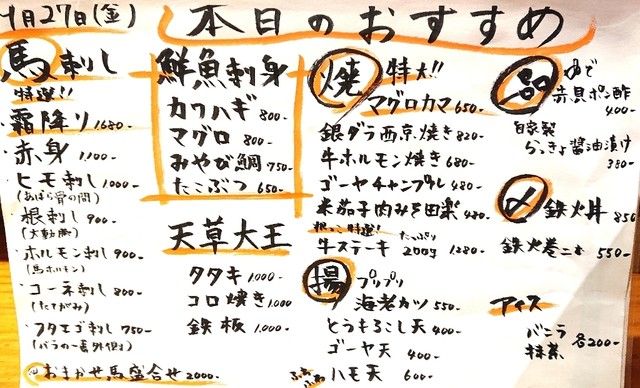 9月27日(金)
本日のおすすめ
馬刺し
特選!!
霜降り 1680-
赤身 1,100-
ヒモ刺し 1000-
(あばら骨の間)
根刺し 900-
(大動脈)
ホルモン刺し 900-
(馬ホルモン)
コーネ刺し 800-
(たてがみ)
フタエゴ刺し 750-
(バラの一番外側)
おまかせ馬盛合せ 2000-
鮮魚刺身
カワハギ 800-
マグロ 800-
みやび鯛 750-
たこぶつ 650-
天草大王
タタキ 1000-
コロ焼き 1,000
鉄板 1,000-
焼
特大!!
マグロカマ 650-
銀ダラ西京焼き 820-
牛ホルモン焼き 680-
ゴーヤチャンプル 480-
米茄子肉みそ田楽 480-
特選!
牛ステーキ たっぷり200g 1280-
揚
プリプリ
海老カツ 550-
とうもろこし天 400-
ゴーヤ天 400-
ハモ天 600-
ゆで
赤貝ポン酢
400-
自家製
らっきょ醤油漬け
380-
〆
鉄火丼 850
鉄火巻二本 550-
アイス
バニラ
抹茶
各200-